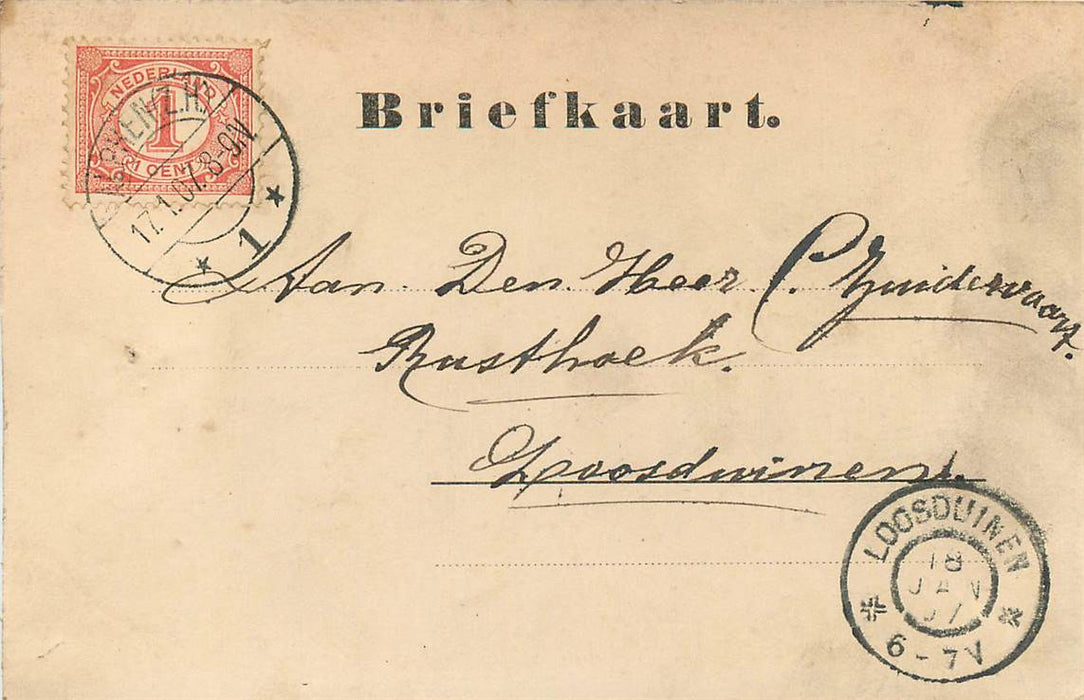 NEDERLAND
1
1 CENT
17.1.07.8-9N
1
Briefkaart.
Aan Den Heer C. Zuidervaart.
Rusthoek.
Loosduinen.
LOOSDUINEN
18
JAN
07
6-7V